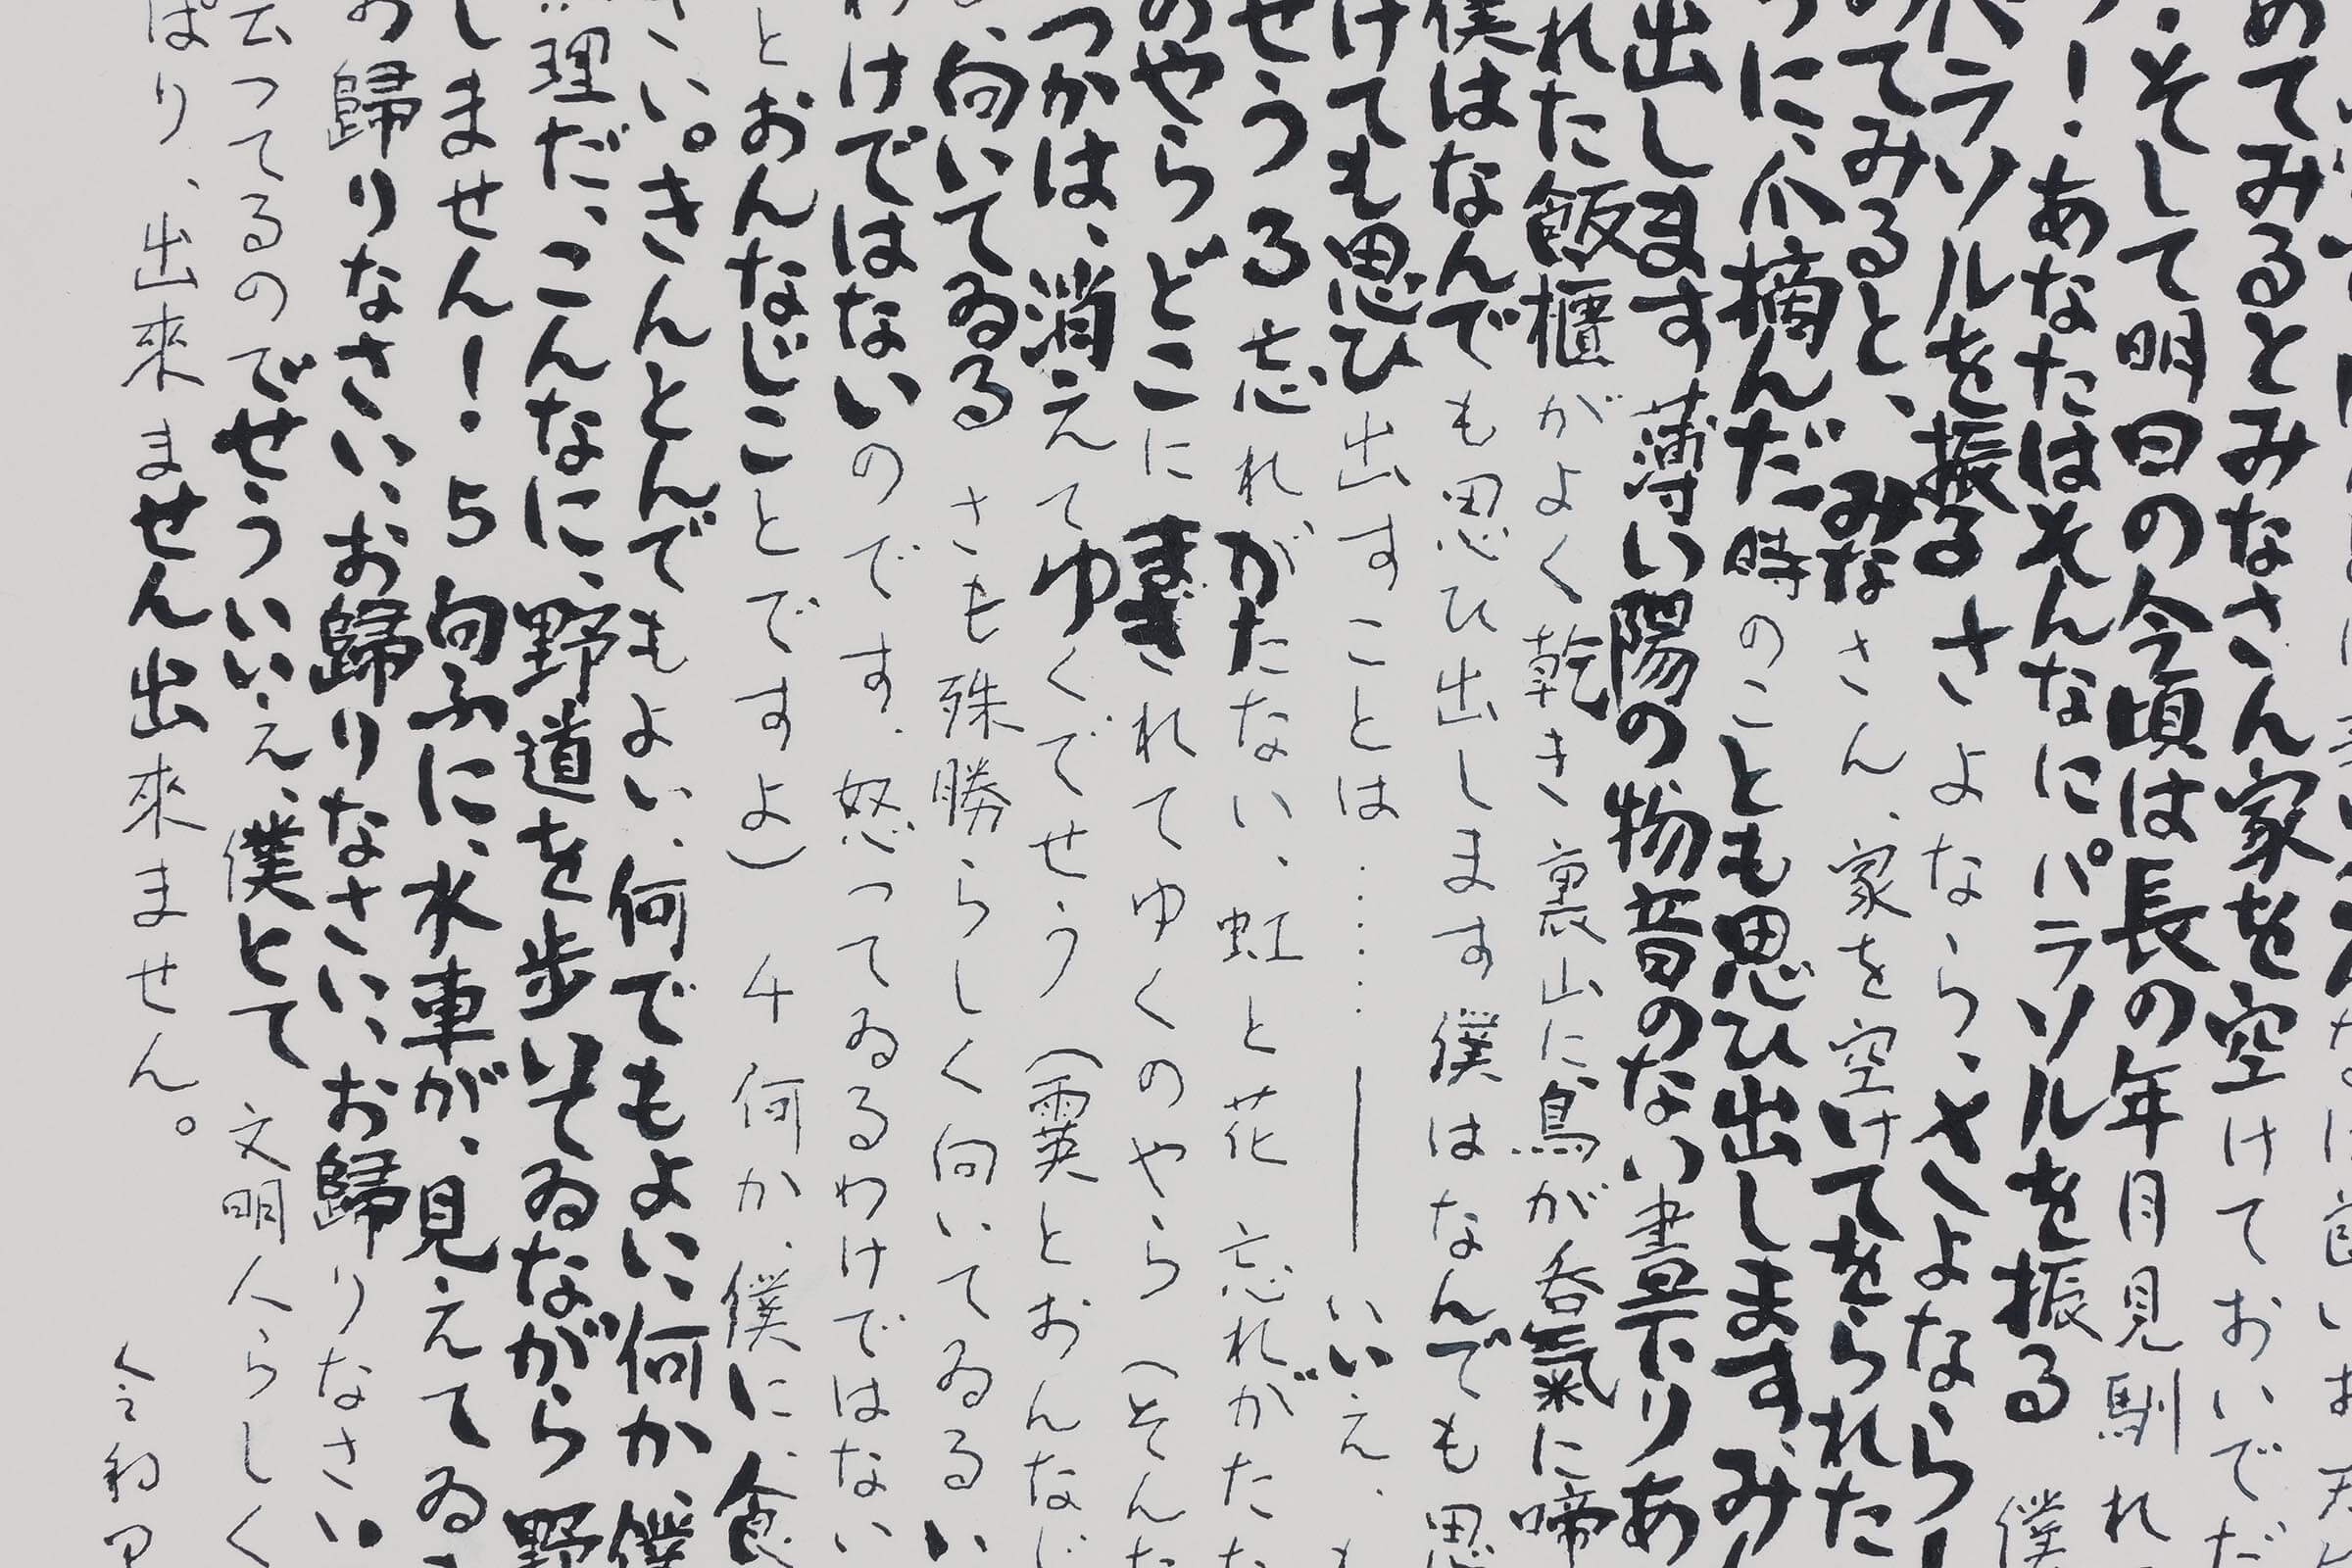 めてみるとみなさん家を空けておいでだ
・そして明日の今頃は長の年月見馴れ
！・あなたはそんなにパラソルを振る 僕
パラソルを振る さよなら、さよなら！
めてみると、みなさん、家を空けてをられた
うに、爪摘んだ時のことも思ひ出します、みん
出します 薄い陽の物音のない晝下りあ
れた飯櫃がよく乾き 裏山に鳥が呑氣に啼
僕はなんでも思ひ出します 僕はなんでも思
けても思ひ出すことは……――いいえ、
せうろ 忘れがたない、虹と花 忘れがたな
のやら どこにまぎれてゆくのやら (そんな
つかは、消えてゆくでせう (霙とおんなじ
向いてゐる さも殊勝らしく向いてゐる い
わけではないのです、怒つてゐるわけではない
とおんなじことですよ) 4 何か、僕に、食
さい。きんとんでもよい、何でもよいに何か、僕
理だ、こんなに、野道を歩いてゐながら 野
しません！・5 向ふに、水車が、見えてゐ
お歸りなさい、お歸りなさい、お歸りなさい
云つてるのでせう いいえ、僕とて 文明人らしく
ぱり、出來ません出來ません。 令和